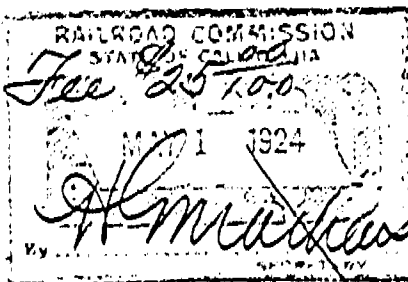 RAILROAD COMMISSION
STATE OF CALIFORNIA
Fee $25 00/100
MAY 1 1924
By
SECRETARY